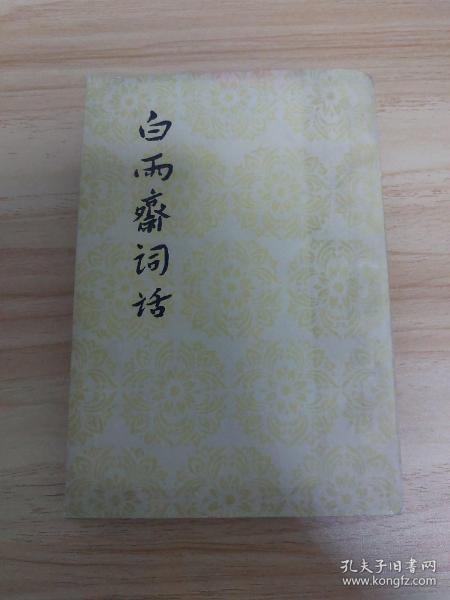 白雨齋词话
孔夫子旧书网
www.kongfz.com